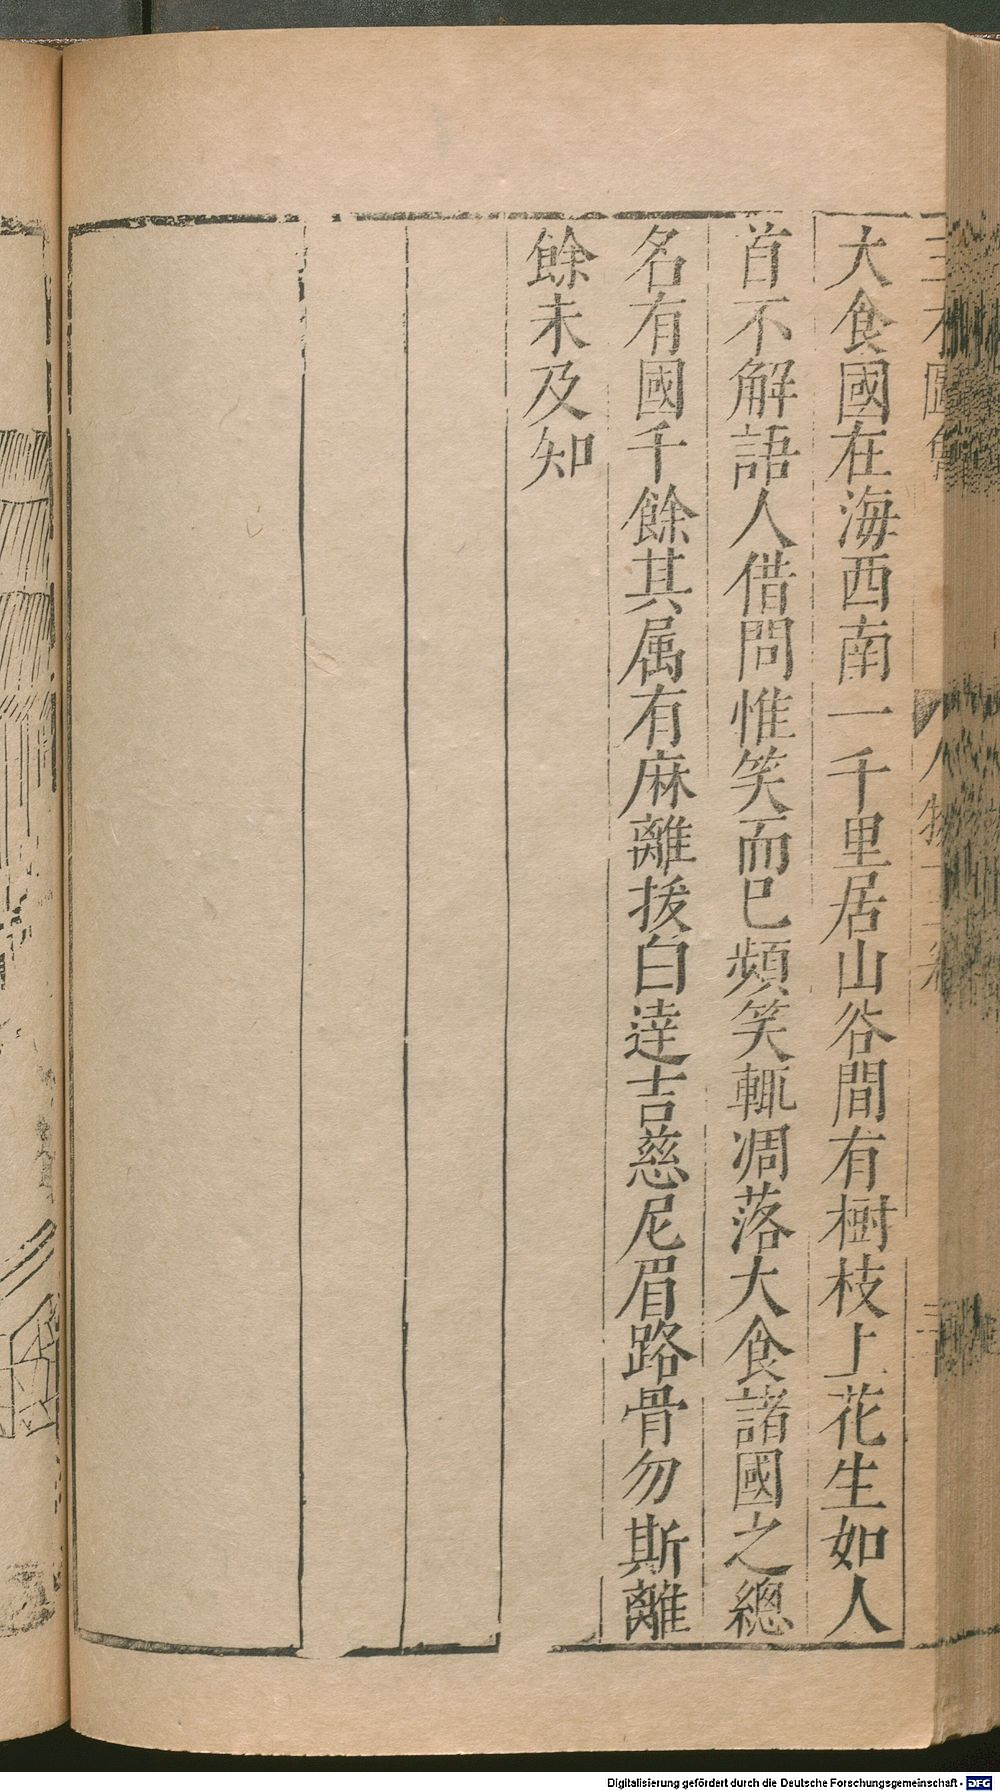 大食國在海西南一千里居山谷間有樹枝上花生如人
首不解語人借問惟笑而已頻笑輒凋落大食諸國之總
名有國千餘其属有麻離拔白達吉慈尼眉路骨勿斯離
餘未及知
Digitalisierung gefördert durch die Deutsche Forschungsgemeinschaft - DFG